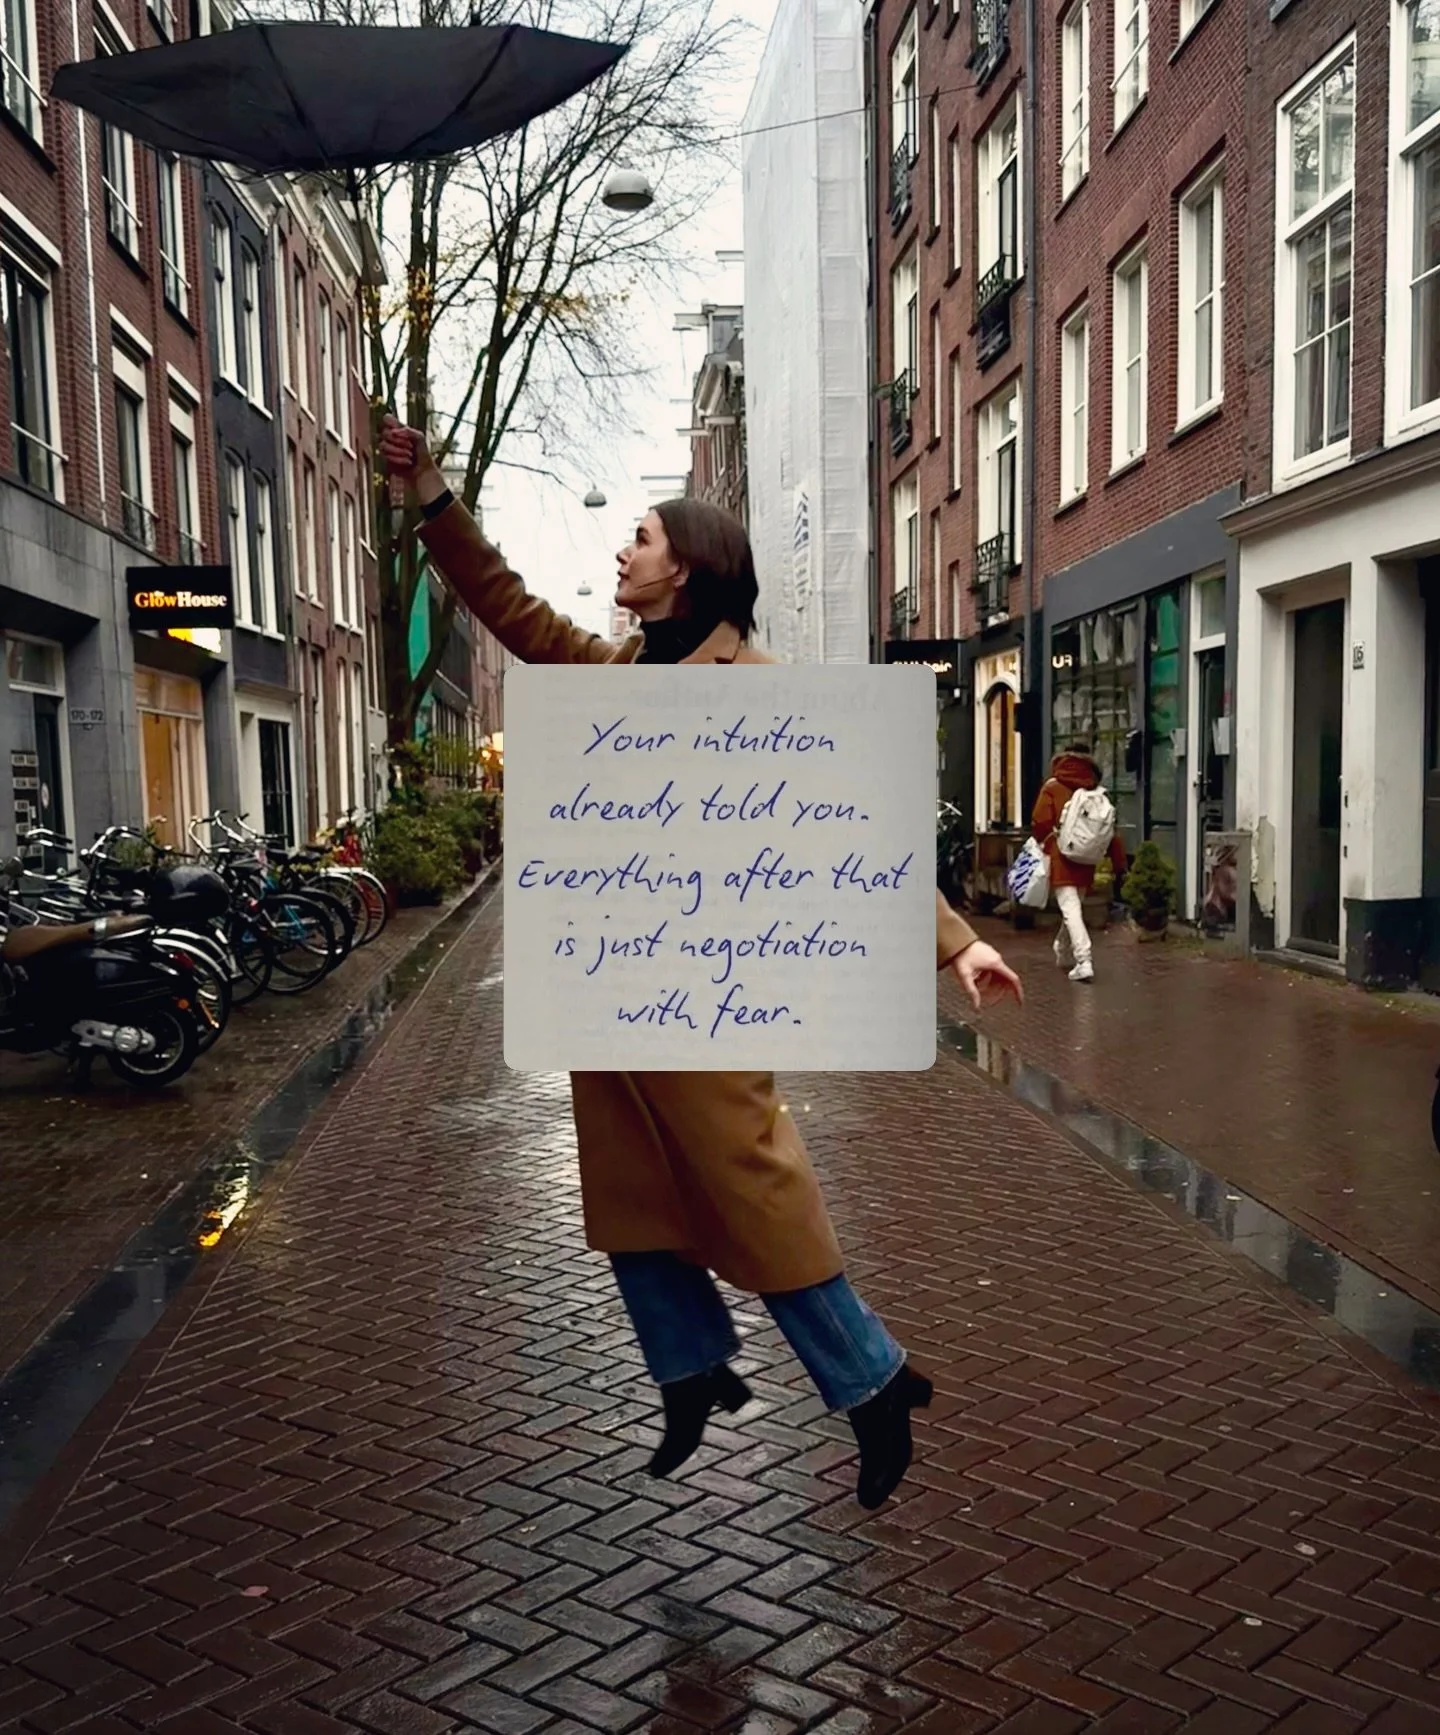 GlowHouse
170-172
15
About the Author
Your intuition
already told you.
Everything after that
is just negotiation
with fear.